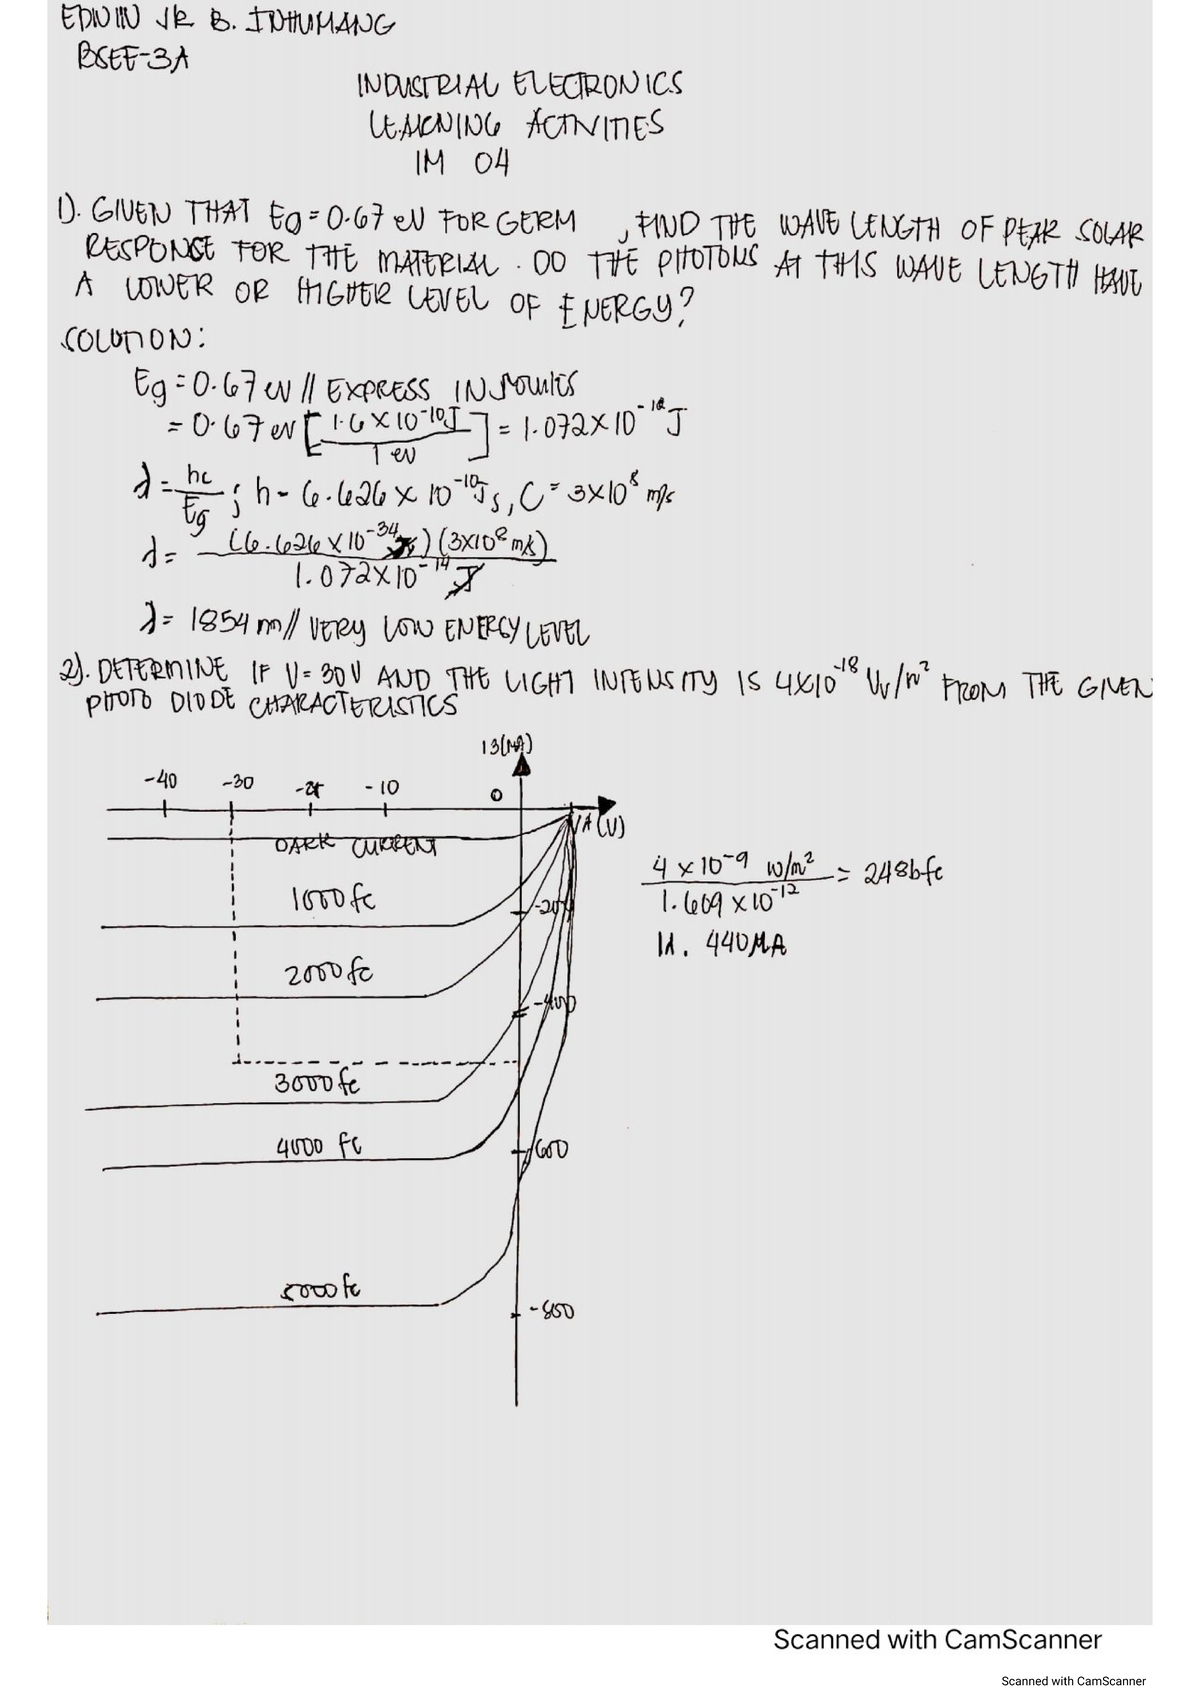 EDWIN JR B. INHUMANG
BSEE-3A
INDUSTRIAL ELECTRONICS
LEARNING ACTIVITIES
IM 04
1). GIVEN THAT Eg = 0.67 eV FOR GERM , FIND THE WAVE LENGTH OF PEAK SOLAR
RESPONSE FOR THE MATERIAL. DO THE PHOTONS AT THIS WAVE LENGTH HAVE
A LOWER OR HIGHER LEVEL OF ENERGY?
SOLUTION:
Eg = 0.67 eV // EXPRESS IN JOULES
= 0.67 eV [1.6 x 10^-10 J / 1 eV] = 1.072 x 10^-12 J
λ = hc/Eg ; h - 6.626 x 10^-10 Js, C = 3x10^8 m/s
λ = (6.626 x 10^-34 ) (3x10^8 m/s) / 1.072 x 10^-14 J
λ = 1854 nm // VERY LOW ENERGY LEVEL
2). DETERMINE IF V = 30V AND THE LIGHT INTENSITY IS 4x10^-18 W/m² FROM THE GIVEN
PHOTO DIODE CHARACTERISTICS
13(MA)
-40 -30 -10 0
VA (V)
DARK CURRENT
4 x 10^-9 W/m² / 1.609 x 10^-12 = 2486 fc
Id. 440 MA
1000 fc
-200
2000 fc
-400
3000 fc
4000 fc
-600
5000 fc
-800
Scanned with CamScanner
Scanned with CamScanner